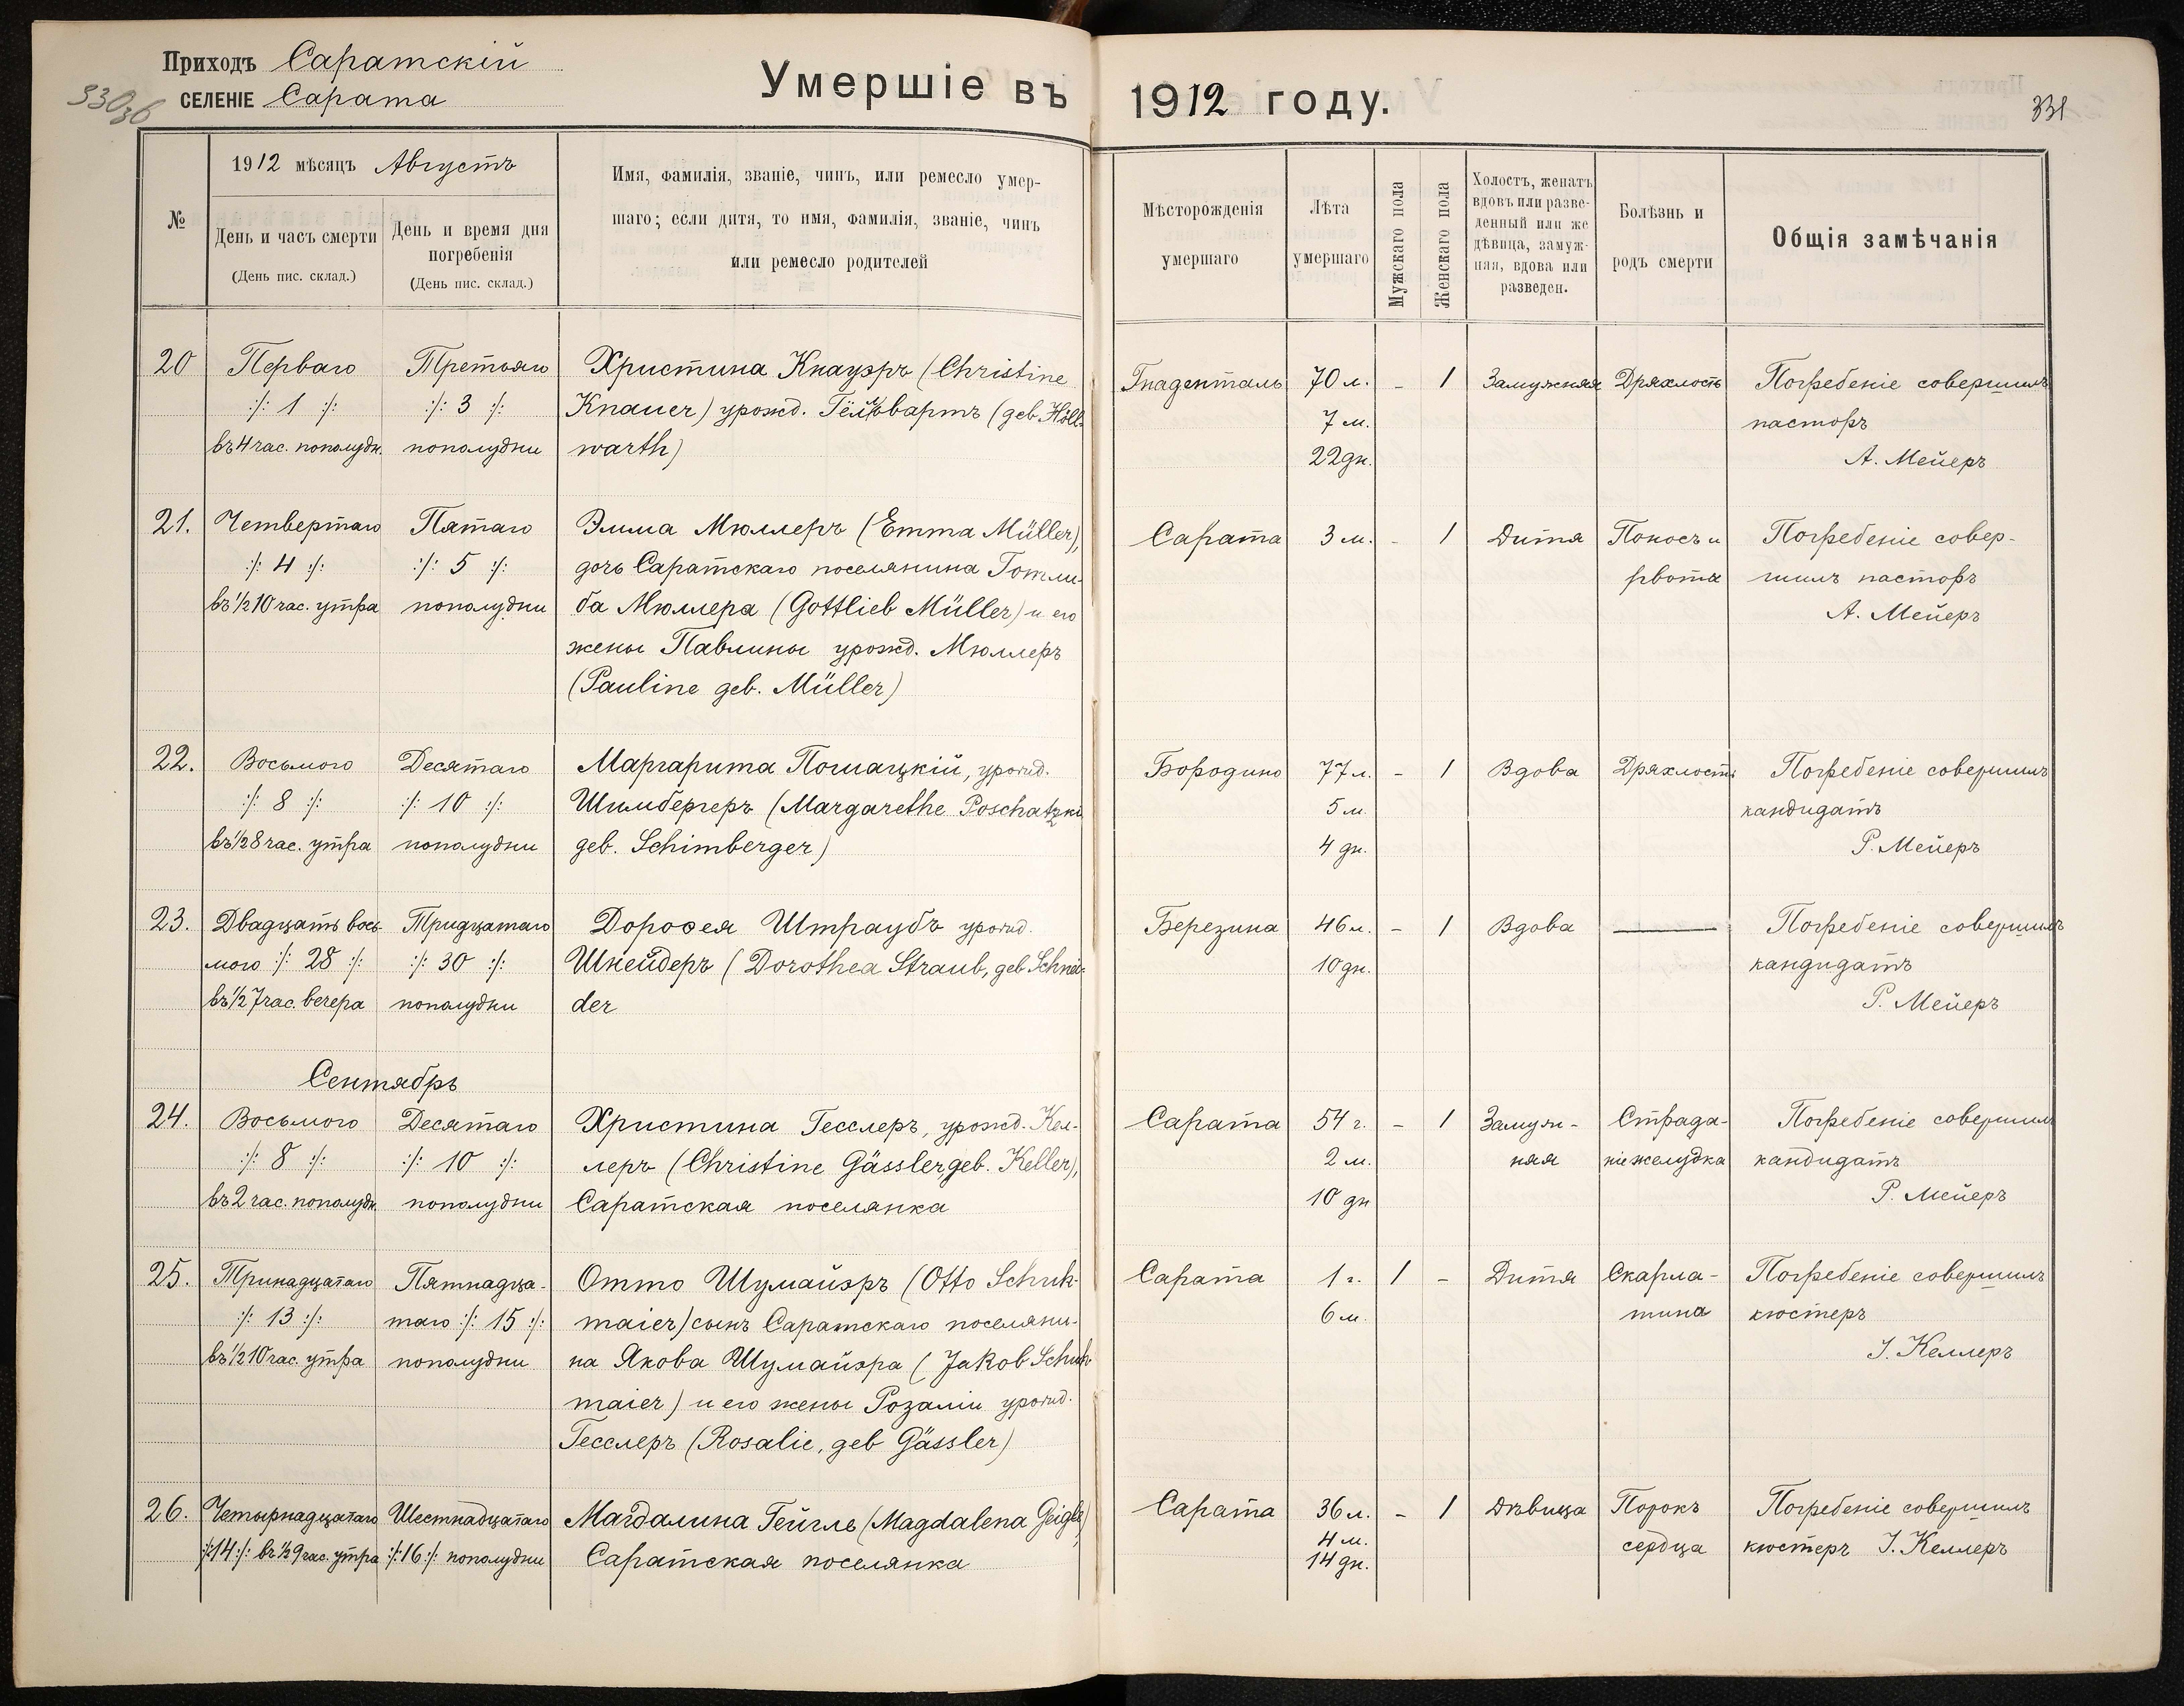 Приходъ Саратскій
СЕЛЕНІЕ Сарата
Умершіе въ 1912 году.
331
№
1912 мѣсяцъ Августъ
День и часъ смерти
(День пис. склад.)
День и время дня
погребенія
(День пис. склад.)
Имя, фамилія, званіе, чинъ, или ремесло умер-
шаго; если дитя, то имя, фамилія, званіе, чинъ
или ремесло родителей
Мѣсторожденія
умершаго
Лѣта
умершаго
Мужскаго пола
Женскаго пола
Холостъ, женатъ
вдовъ или разве-
денный или же
дѣвица, замуж-
няя, вдова или
разведен.
Болѣзнь и
родъ смерти
Общія замѣчанія
20
Перваго
:/: 1 :/:
въ 4 час. пополудн.
Третьяго
:/: 3 :/:
пополудни
Христина Кнауэръ (Christine
Knauer) урожд. Гёлльвартъ (geb. Höll-
warth)
Гнаденталь
70 л.
7 м.
22 дн.
-
1
Замужняя
Дряхлость
Погребеніе совершилъ
пасторъ
А. Мейеръ
21.
Четвертаго
:/: 4 :/:
въ ½10 час. утра
Пятаго
:/: 5 :/:
пополудни
Эмма Мюллеръ (Emma Müller),
дочь Саратскаго поселянина Готли-
ба Мюллера (Gottlieb Müller) и его
жены Павлины урожд. Мюллеръ
(Pauline geb. Müller)
Сарата
3 м.
-
1
Дитя
Поносъ и
рвота
Погребеніе совер-
шилъ пасторъ
А. Мейеръ
22.
Восьмого
:/: 8 :/:
въ ½8 час. утра
Десятаго
:/: 10 :/:
пополудни
Маргарита Пошацкій, урожд.
Шимбергеръ (Margarethe Poschatzki
geb. Schimberger)
Бородино
77 л.
5 м.
4 дн.
-
1
Вдова
Дряхлость
Погребеніе совершилъ
кандидатъ
Р. Мейеръ
23.
Двадцать вось-
мого :/: 28 :/:
въ ½7 час. вечера
Тридцатаго
:/: 30 :/:
пополудни
Доровея Штраубъ урожд.
Шнейдеръ (Dorothea Straub, geb Schnei-
der
Березина
46 л.
10 дн.
-
1
Вдова
Погребеніе совершилъ
кандидатъ
Р. Мейеръ
Сентябрь
24.
Восьмого
:/: 8 :/:
въ 2 час. пополудн.
Десятаго
:/: 10 :/:
пополудни
Христина Гесслеръ, урожд. Кел-
леръ (Christine Gässler, geb. Keller),
Саратская поселянка
Сарата
54 г.
2 м.
10 дн
-
1
Замуж-
няя
Страда-
ніе желудка
Погребеніе совершилъ
кандидатъ
Р. Мейеръ
25.
Тринадцатаго
:/: 13 :/:
въ ½10 час. утра
Пятнадца-
таго :/: 15 :/:
пополудни
Отто Шумайэръ (Otto Schuh-
maier) сынъ Саратскаго поселяни-
на Якова Шумайэра (Jakob Schuh-
maier) и его жены Розаліи урожд.
Гесслеръ (Rosalie, geb Gässler)
Сарата
1 г.
6 м.
1
-
Дитя
Скарла-
тина
Погребеніе совершилъ
кюстеръ
І. Келлеръ
26.
Четырнадцатаго
:/: 14 :/: въ ½9 час. утра
Шестнадцатаго
:/: 16 :/: пополудни
Магдалина Гейгле (Magdalena Geigle)
Саратская поселянка
Сарата
36 л.
4 м.
14 дн.
-
1
Дѣвица
Порокъ
сердца
Погребеніе совершилъ
кюстеръ І. Келлеръ